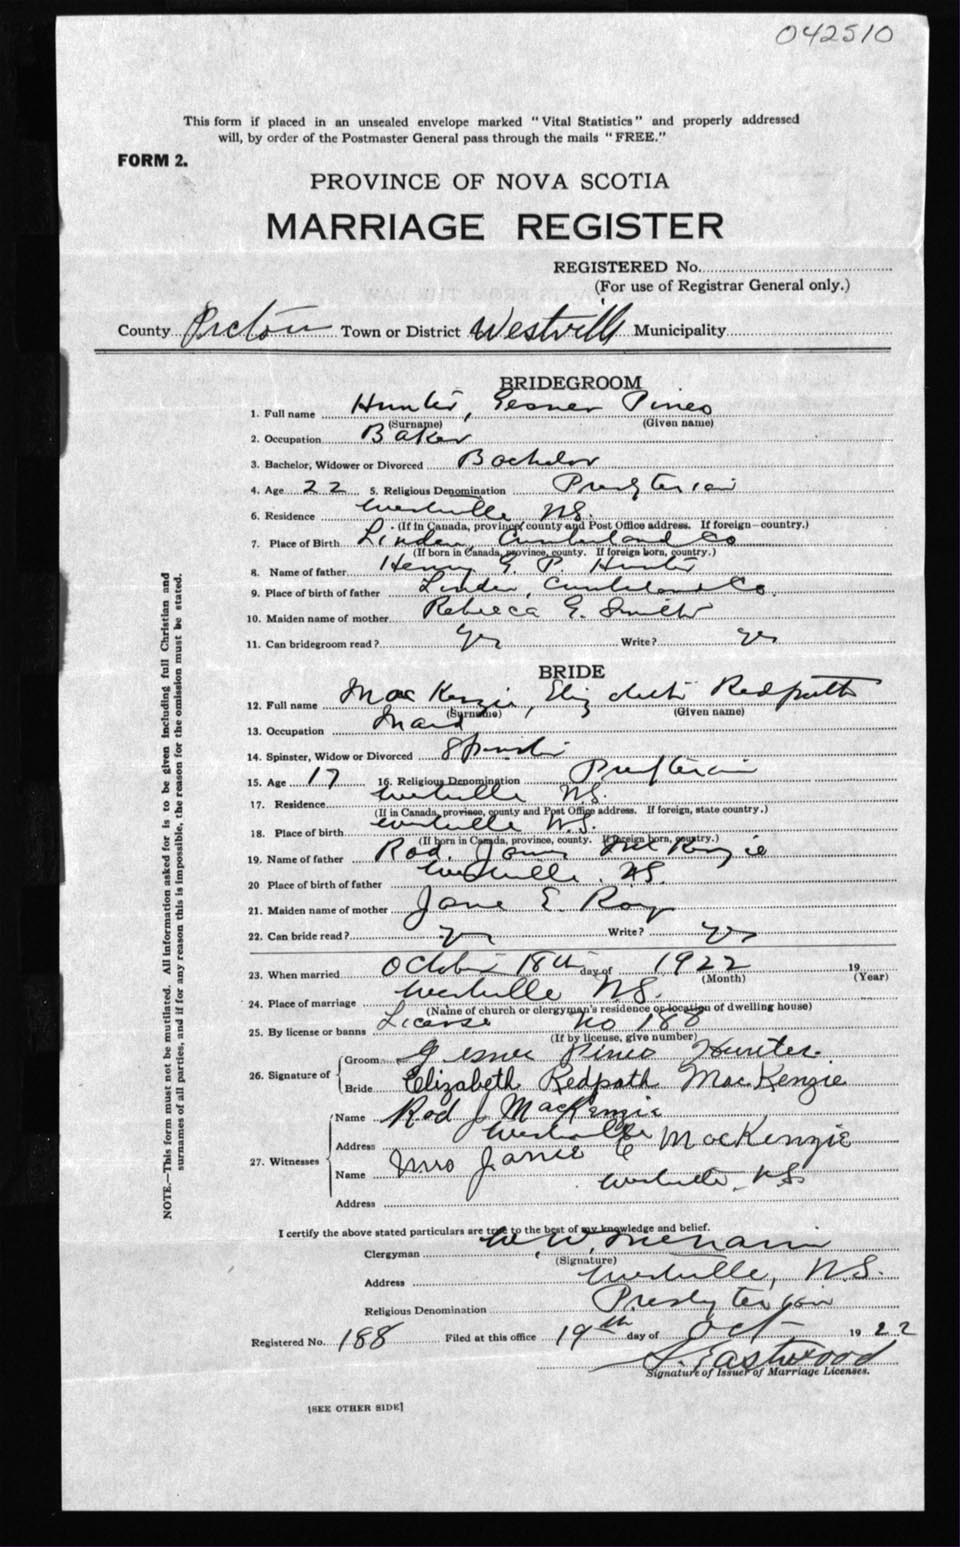 042510
This form if placed in an unsealed envelope marked "Vital Statistics" and properly addressed
will, by order of the Postmaster General pass through the mails "FREE."
FORM 2.
PROVINCE OF NOVA SCOTIA
MARRIAGE REGISTER
REGISTERED No.
(For use of Registrar General only.)
County Pictou Town or District Westville Municipality
BRIDEGROOM
1. Full name Hunter, Gesner Pineo
(Surname) (Given name)
2. Occupation Baker
3. Bachelor, Widower or Divorced Bachelor
4. Age 22 5. Religious Denomination Presbyterian
6. Residence Westville N.S.
(If in Canada, province county and Post Office address. If foreign—country.)
7. Place of Birth Linden, Cumberland Co
(If born in Canada, province, county. If foreign born, country.)
8. Name of father Henry G. P. Hunter
9. Place of birth of father Linden, Cumberland Co.
10. Maiden name of mother Rebecca E. Smith
11. Can bridegroom read? yes Write? yes
BRIDE
12. Full name MacKenzie, Elizabeth Redpath
(Surname) (Given name)
13. Occupation
14. Spinster, Widow or Divorced Spinster
15. Age 17 16. Religious Denomination Presbyterian
17. Residence Westville N.S.
(If in Canada, province, county and Post Office address. If foreign, state country.)
18. Place of birth Westville N.S.
(If born in Canada, province, county. If foreign born, country.)
19. Name of father Rod. James McKenzie
20 Place of birth of father Westville N.S.
21. Maiden name of mother Jane E. Roy
22. Can bride read? yes Write? yes
23. When married October 18th day of 1922 19
(Month) (Year)
24. Place of marriage Westville N.S.
(Name of church or clergyman's residence or location of dwelling house)
25. By license or banns License No 188
(If by license, give number)
26. Signature of Groom Gesner Pineo Hunter
Bride Elizabeth Redpath MacKenzie
27. Witnesses Name Rod J MacKenzie
Address Westville
Name Mrs Janie E MacKenzie
Address Westville, N.S.
I certify the above stated particulars are true to the best of my knowledge and belief.
Clergyman W. W.
(Signature)
Address Westville, N.S.
Religious Denomination Presbyterian
Registered No. 188 Filed at this office 19th day of Oct 1922
S. Eastwood
Signature of Issuer of Marriage Licenses.
[SEE OTHER SIDE]
NOTE.—This form must not be mutilated. All information asked for is to be given including full Christian and
surnames of all parties, and if for any reason this is impossible, the reason for the omission must be stated.